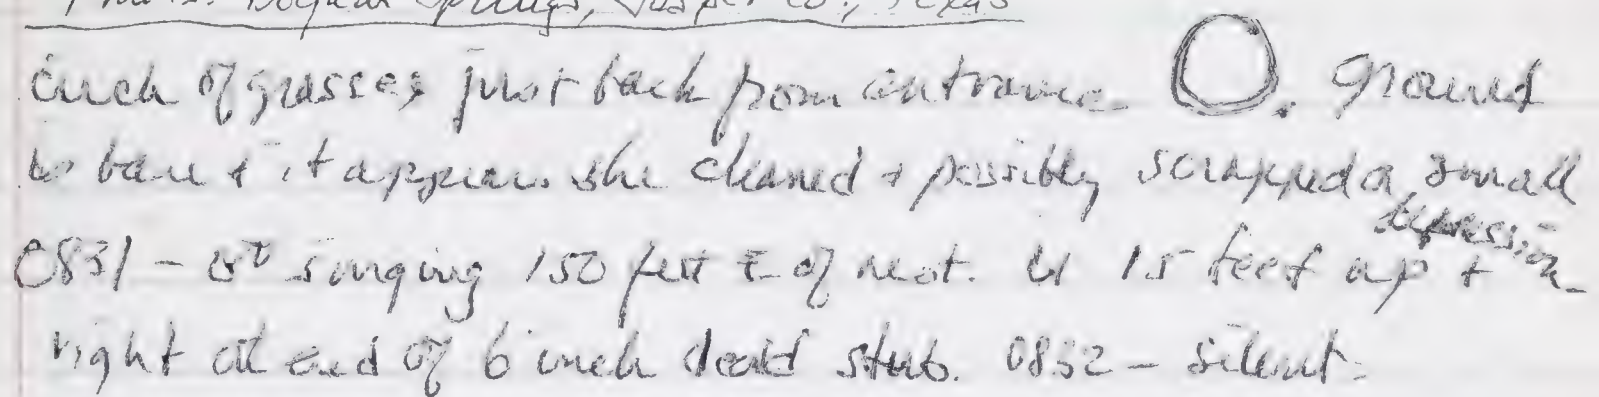 Springs, Jasper Co., Texas
circle of grasses just back from entrance. O. Ground
is bare & it appears she cleaned & possibly scrapped a small
depression
0831 - singing 150 feet E of nest. 15 feet up &
right at end of 6 inch dead stub. 0832 - silent.